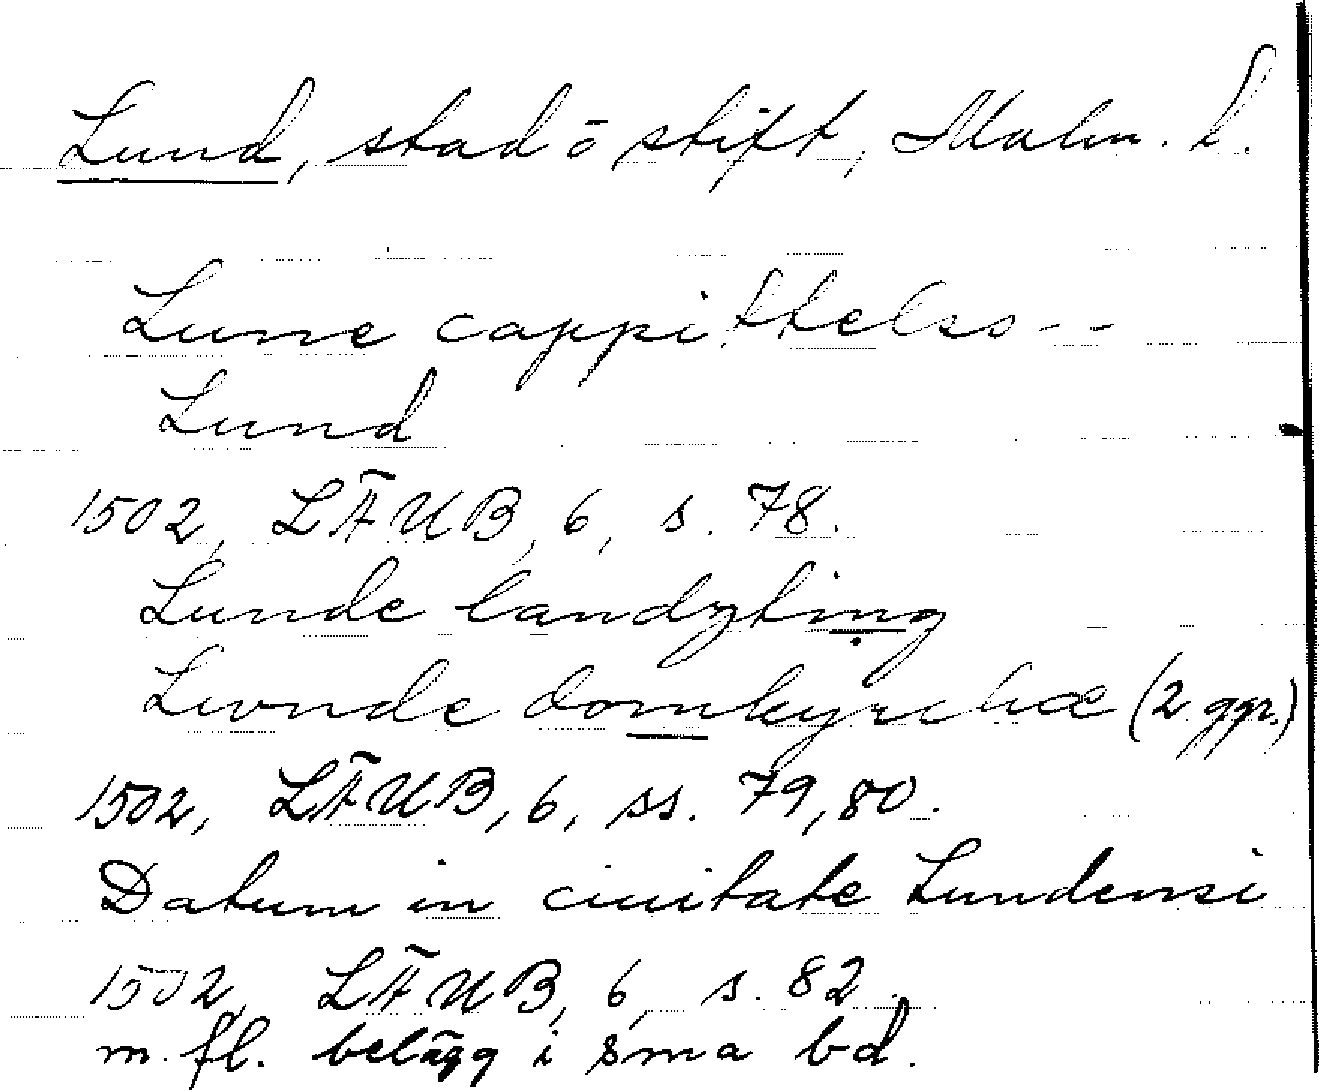 Lund, stad ō stift, Malm. l.
Lune cappittelss--
Lund
1502, LÄUB, 6, s. 78.
Lunde landzting
Lvnde domkyrchæ (2 ggr.)
1502, LÄUB, 6, ss. 79, 80.
Datum in ciuitate Lundensi
1502, LÄUB, 6, s. 82.
m. fl. belägg i sma bd.